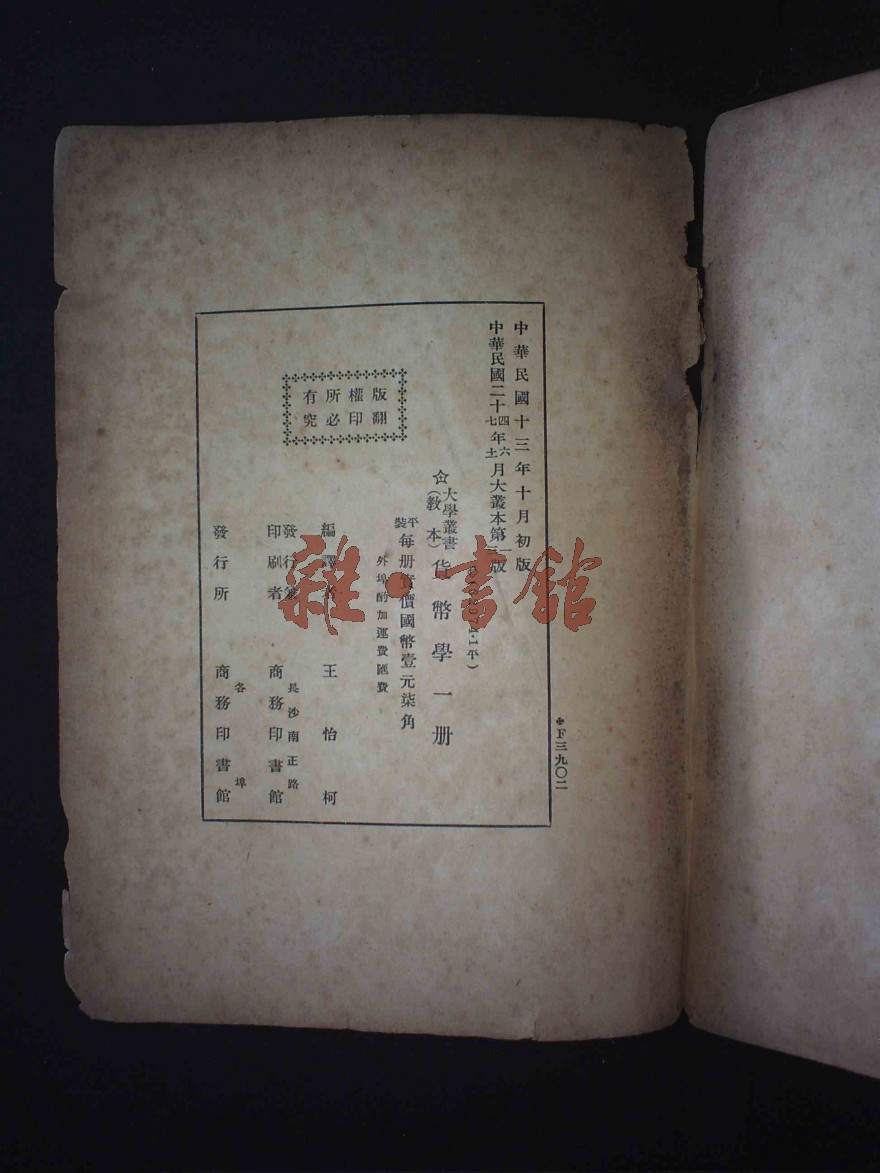 中華民國十三年十月初版
中華民國二十四年六月大叢本第一版
七 十一 三
☆大學叢書
(教本)貨幣學一册
平裝每册實價國幣壹元柒角
外埠酌加運費匯費
版權所有
翻印必究
編譯者 王怡柯
發行
印刷者 長沙南正路
商務印書館
發行所 各埠
商務印書館
F三九〇二
雜·書館